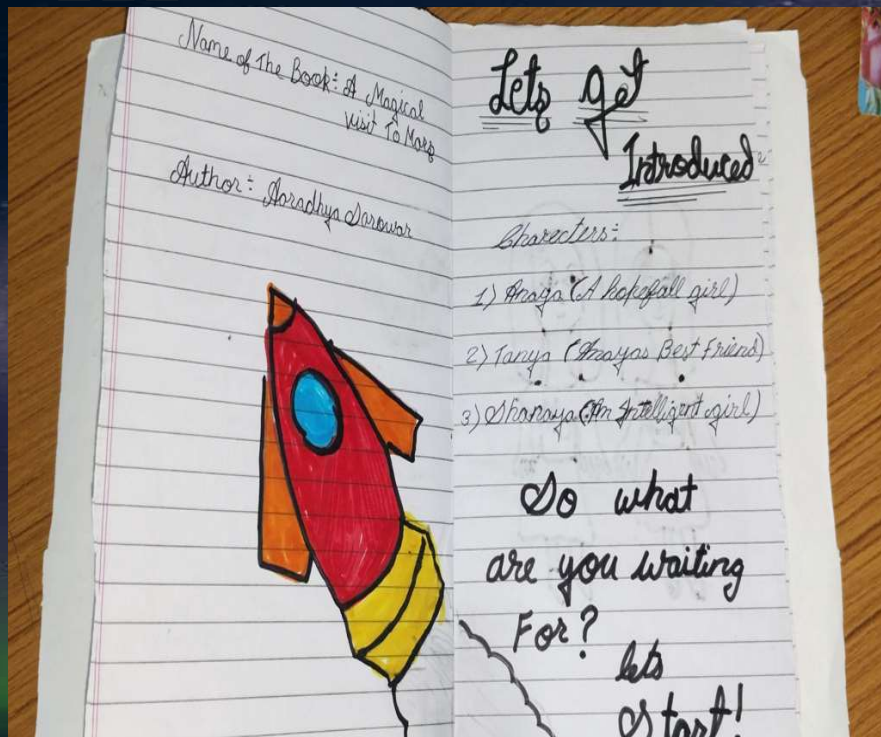 Name of The Book:- A Magical
visit To Mars
Author:- Aaradhya Sarowar
Lets get
Introduced
Charecters:-
1) Anaya (A hopefull girl)
2) Tanya (Anayas Best Friend)
3) Shanaya (An Intelligent girl)
So what
are you waiting
For?
lets
Start!